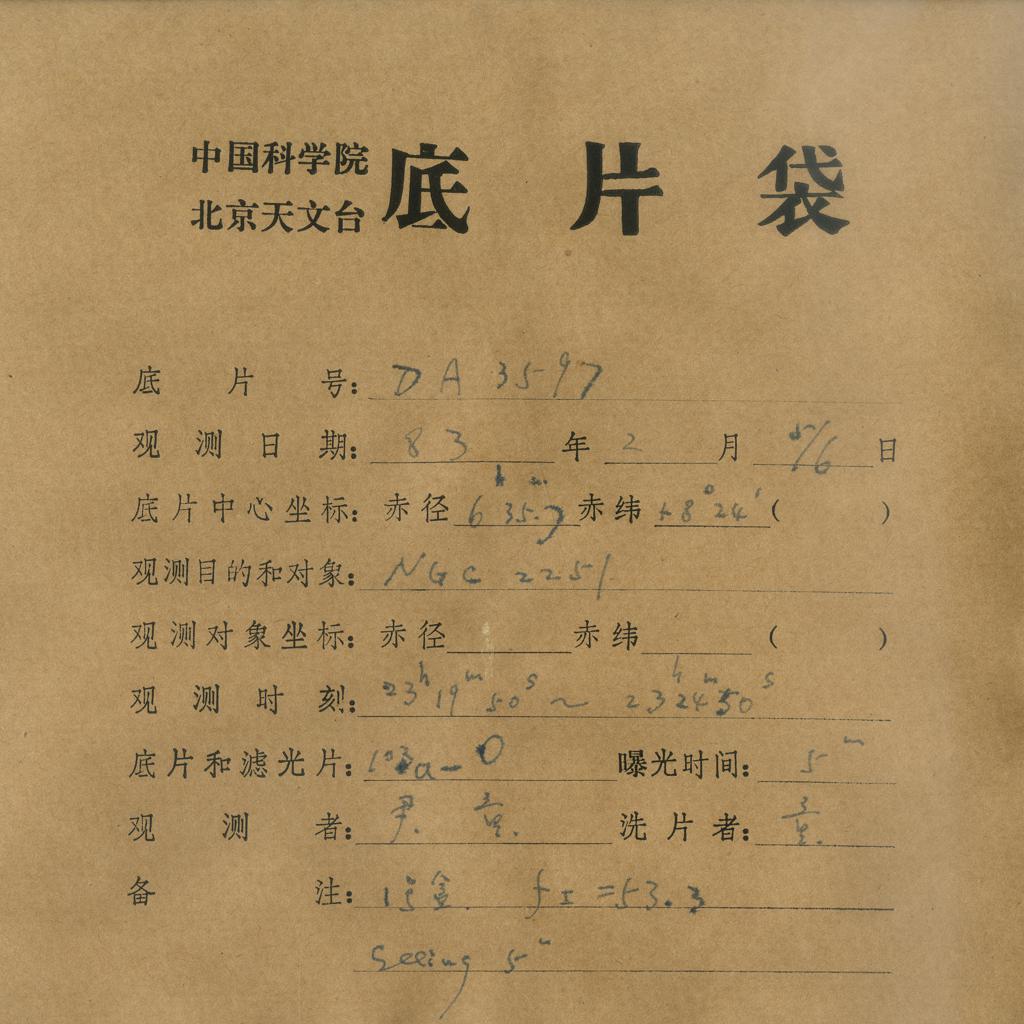 中国科学院
北京天文台
底片袋
底片号: DA 3597
观测日期: 83 年 2 月 5/6 日
底片中心坐标: 赤径 6h 35.7m 赤纬 +8°24′ ( )
观测目的和对象: NGC 2251
观测对象坐标: 赤径 赤纬 ( )
观测时刻: 23h19m50s ~ 23h24m50s
底片和滤光片: 103a-O 曝光时间: 5m
观测者: 尹. 童. 洗片者: 童.
备注: 1号盒. fI=53.3
Seeing 5"